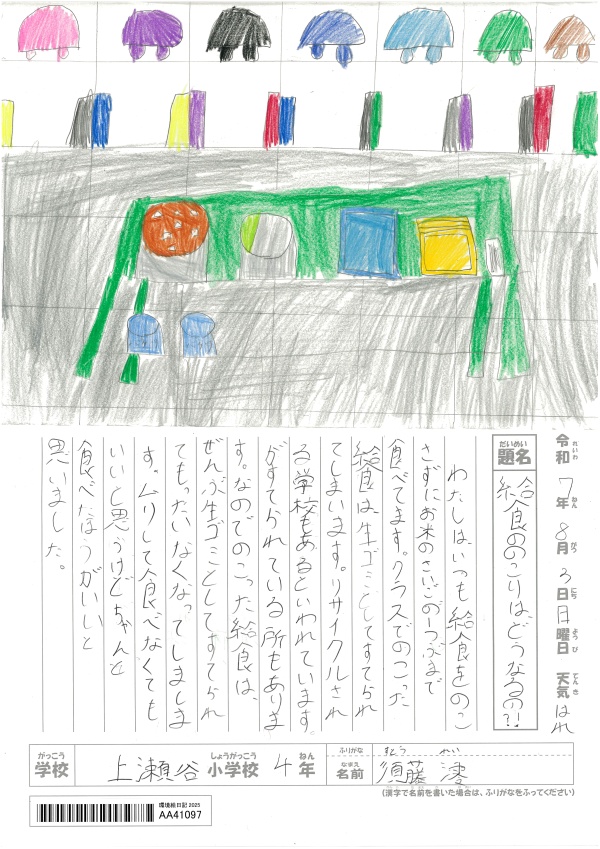 令和7年8月3日日曜日 天気はれ
れいわ ねん がつ にち ようび てんき
だいめい
題名
給食ののこりはどうなるの?!
わたしはいつも給食をのこ
さずにお米のさいごの一つぶまで
食べてます。クラスでのこった
給食は生ゴミとしてすてられ
てしまいます。リサイクルされ
る学校もあるといわれています
がすてられている所もありま
す。なのでのこった給食は、
ぜんぶ生ゴミとしてすてられ
てもったいなくなってしましま
す。ムリして食べなくても
いいと思うけどちゃんと
食べたほうがいいと
思いました。
がっこう しょうがっこう ねん
学校 上瀬谷小学校 4年
ふりがな すとう れい
なまえ
名前 須藤 澪
(漢字で名前を書いた場合は、ふりがなをふってください)
環境絵日記 2025
AA41097